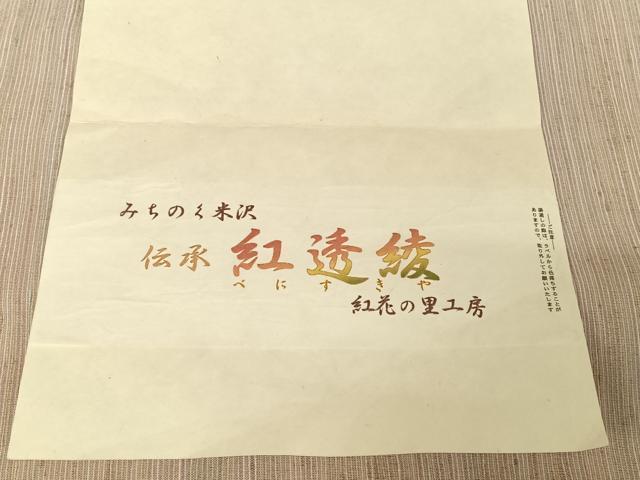 みちのく米沢
伝承 紅透綾
べにすきや
紅花の里工房
ご注意
湯通しの節は、ラベルから色落ちすることが
ありますので、取り外してお願いいたします